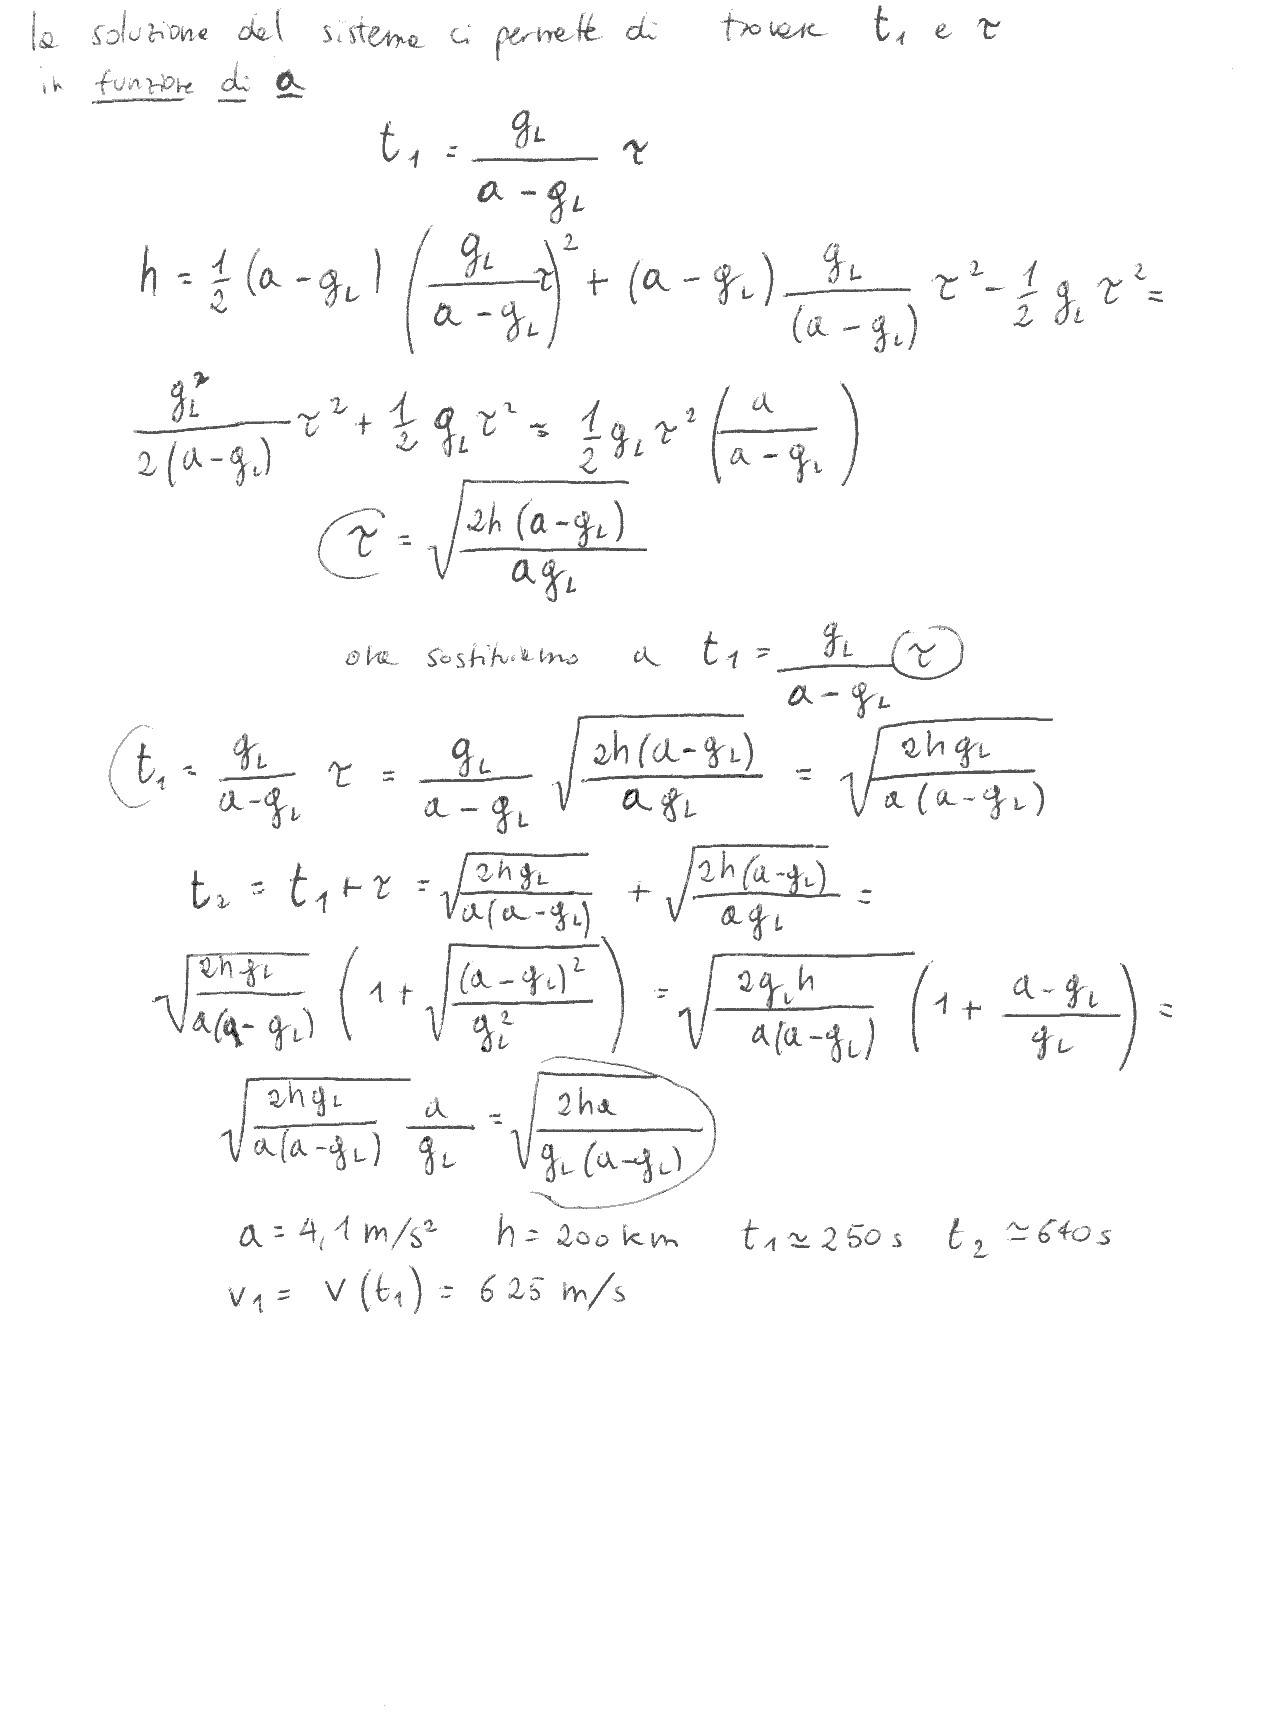 la soluzione del sistema ci permette di trovare t₁ e τ
in funzione di a
t₁ = g_L / (a - g_L) τ
h = 1/2 (a - g_L) (g_L / (a - g_L) τ)² + (a - g_L) g_L / (a - g_L) τ² - 1/2 g_L τ² =
g_L² / 2(a - g_L) τ² + 1/2 g_L τ² = 1/2 g_L τ² (a / (a - g_L))
τ = √(2h (a - g_L) / a g_L)
ora sostituiamo a t₁ = g_L / (a - g_L) τ
t₁ = g_L / (a - g_L) τ = g_L / (a - g_L) √(2h (a - g_L) / a g_L) = √(2h g_L / a (a - g_L))
t₂ = t₁ + τ = √(2h g_L / a(a - g_L)) + √(2h (a - g_L) / a g_L) =
√(2h g_L / a(a - g_L)) (1 + √((a - g_L)² / g_L²)) = √(2 g_L h / a(a - g_L)) (1 + (a - g_L) / g_L) =
√(2h g_L / a(a - g_L)) a / g_L = √(2ha / g_L (a - g_L))
a = 4,1 m/s² h = 200 km t₁ ≃ 250 s t₂ ≃ 640 s
v₁ = v (t₁) = 625 m/s